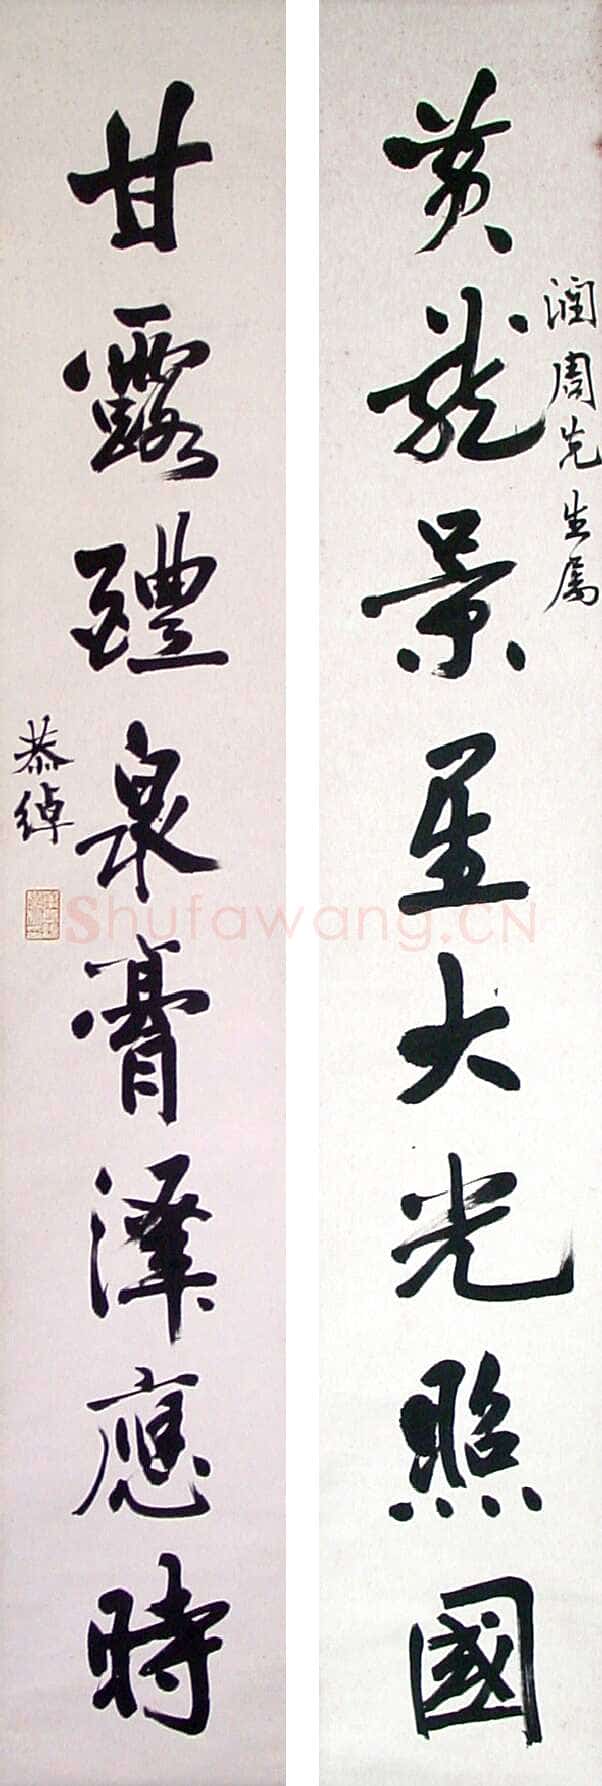 黄龙景星大光照國
潤周先生属
甘露醴泉膏澤應時
恭綽
Shufawang.CN